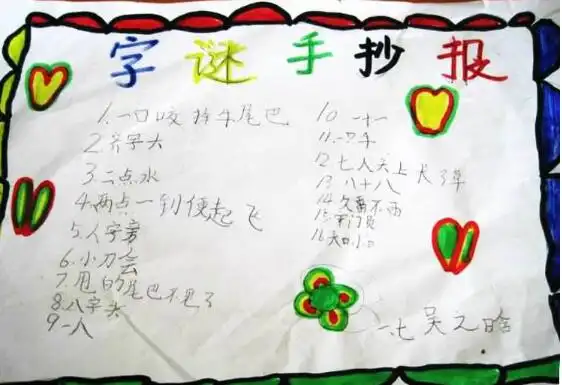 字谜手抄报
1.一口咬掉牛尾巴
2.穷字大
3.二点水
4.两点一到便起飞
5.人字旁
6.小刀会
7.甩的尾巴不见了
8.八字头
9一人
10 一十一
11.一只牛
12 七人头上长了草
13 八十八
14
15 门员
16 大口小口
一.七 吴之晗